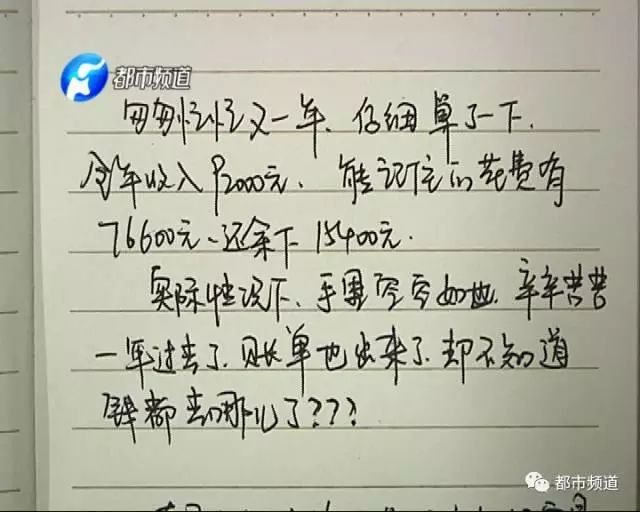 都市频道
匆匆忙忙又一年、仔细算了一下、
全年收入92000元、能记住的花费有
76600元、还余下15400元.
实际情况下、手里空空如也、辛辛苦苦
一年过去了、账单也出来了、却不知道
钱都去哪儿了???
都市频道